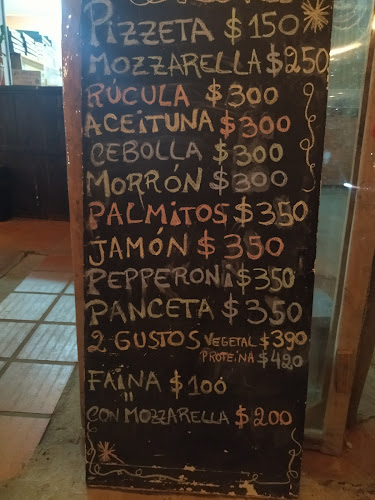 PIZZETA $150
MOZZARELLA $250
RÚCULA $300
ACEITUNA $300
CEBOLLA $300
MORRÓN $300
PALMITOS $350
JAMÓN $350
PEPPERONI $350
PANCETA $350
2 GUSTOS VEGETAL $390
PROTEINA $420
FAINA $100
" CON MOZZARELLA $200